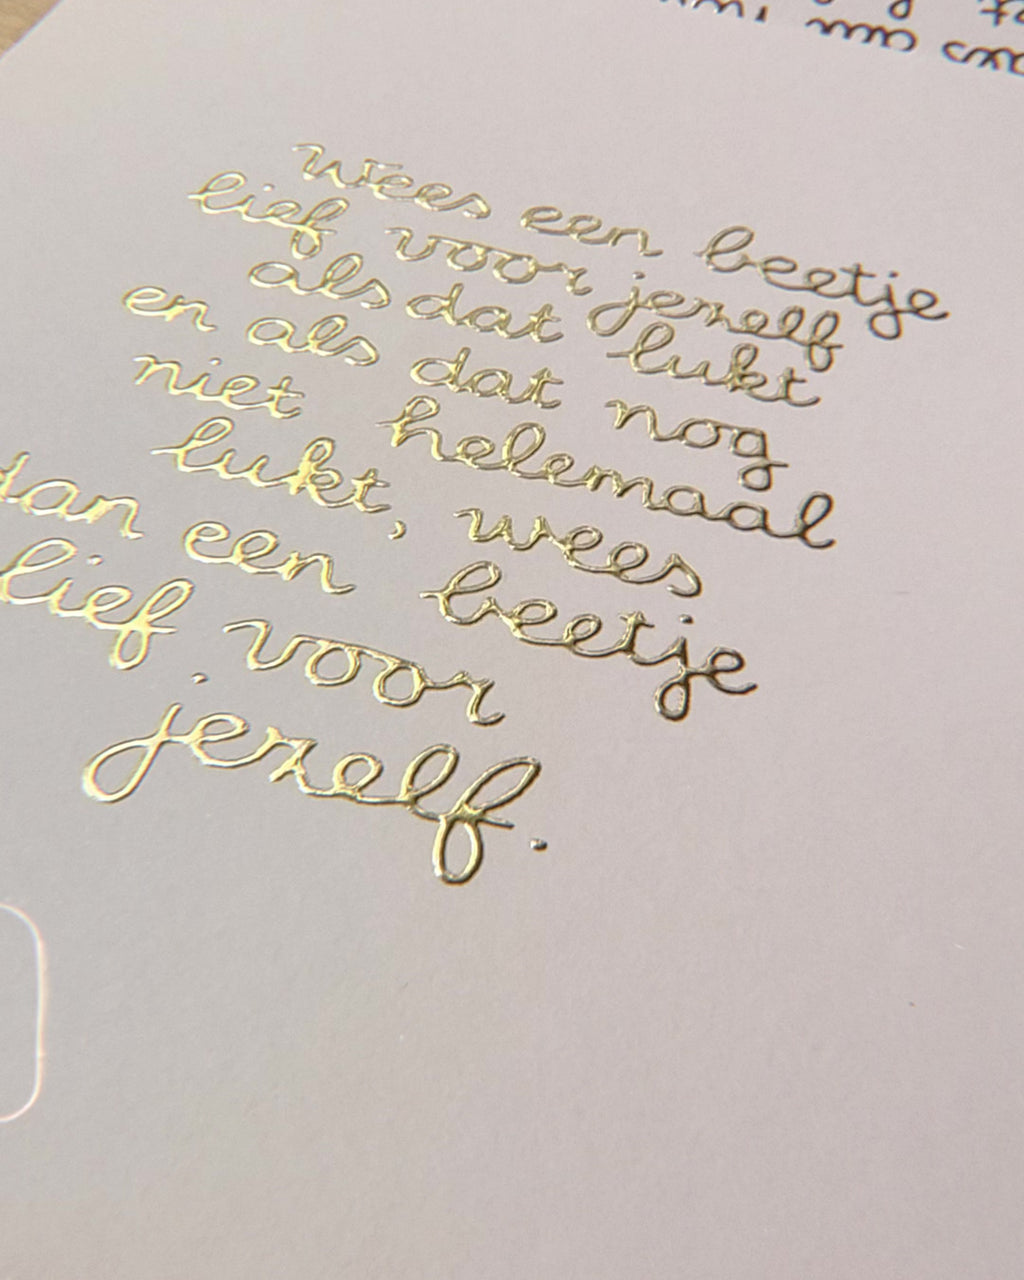 wees een beetje
lief voor jezelf
als dat lukt
en als dat nog
niet helemaal
lukt, wees
dan een beetje
lief voor
jezelf.